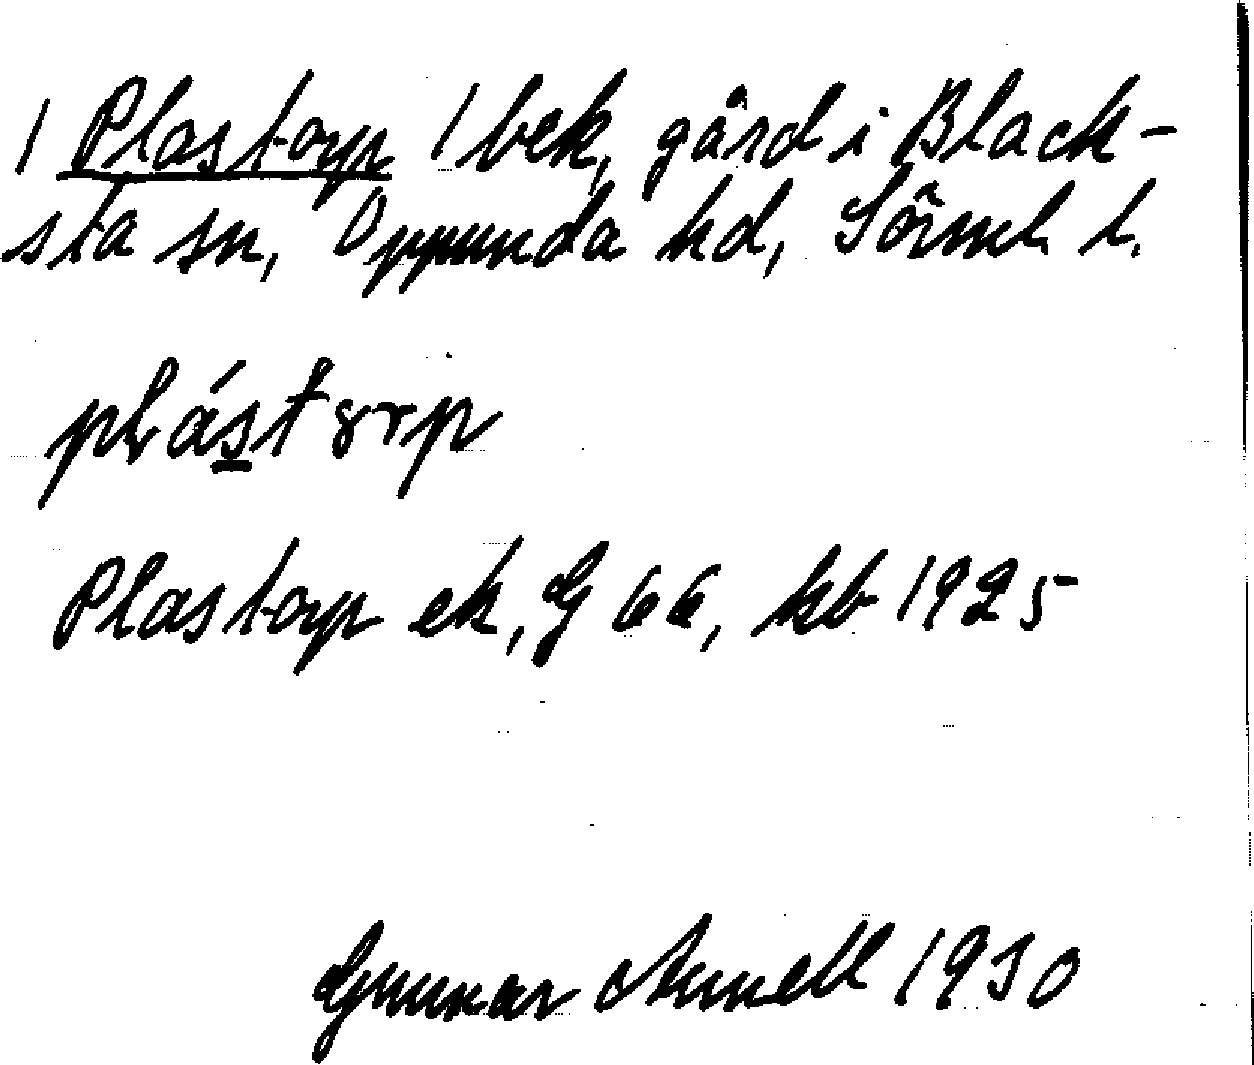 1 Plastorp 1 bek, gård i Black-
sta sn, Oppunda hd, Sörml. l.
plás̲tɤrp
Plastorp ek, G 66, kb 1925
Gunnar Amell 1930